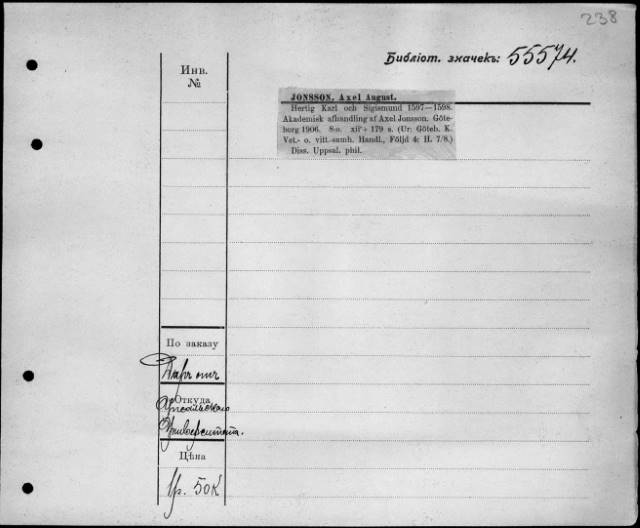 238
Библіот. значекъ: 55574.
Инв.
№
JONSSON, Axel August.
Hertig Karl och Sigismund 1597—1598.
Akademisk afhandling af Axel Jonsson. Göte-
borg 1906. 8:o. xii + 179 s. (Ur: Göteb. K.
Vet.- o. vitt.-samh. Handl., Följd 4: H. 7/8.)
Diss. Uppsal. phil.
По заказу
Откуда
Упсальскаго
Университета.
Цѣна
1р. 50к